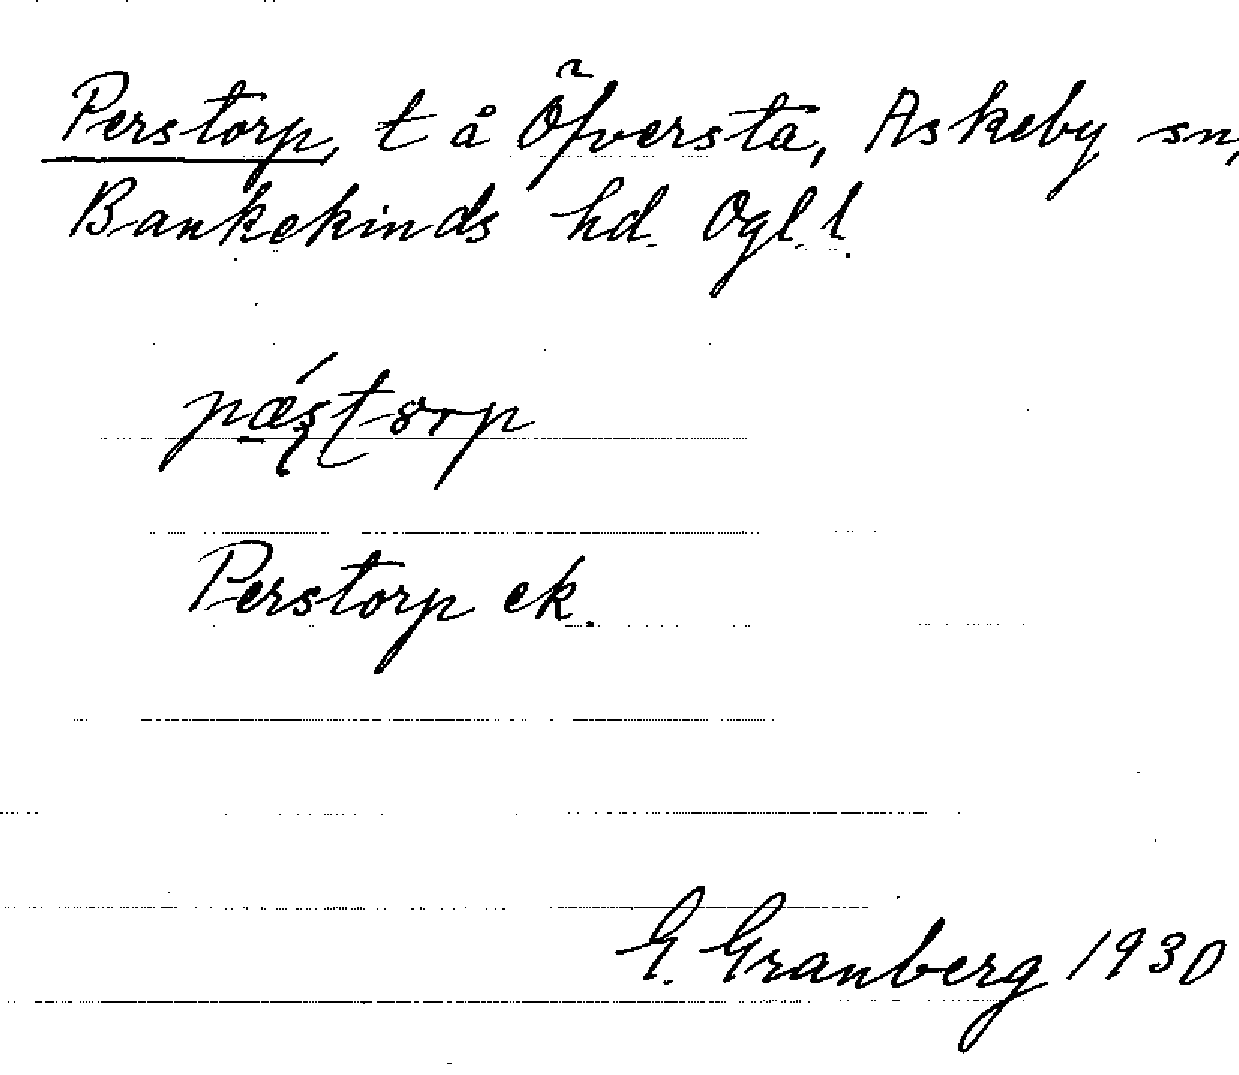 Perstorp, t å Öfversta, Askeby sn,
Bankekinds hd. Ögl. l.
pǽ̠stơrp
Perstorp ek.
G. Granberg 1930